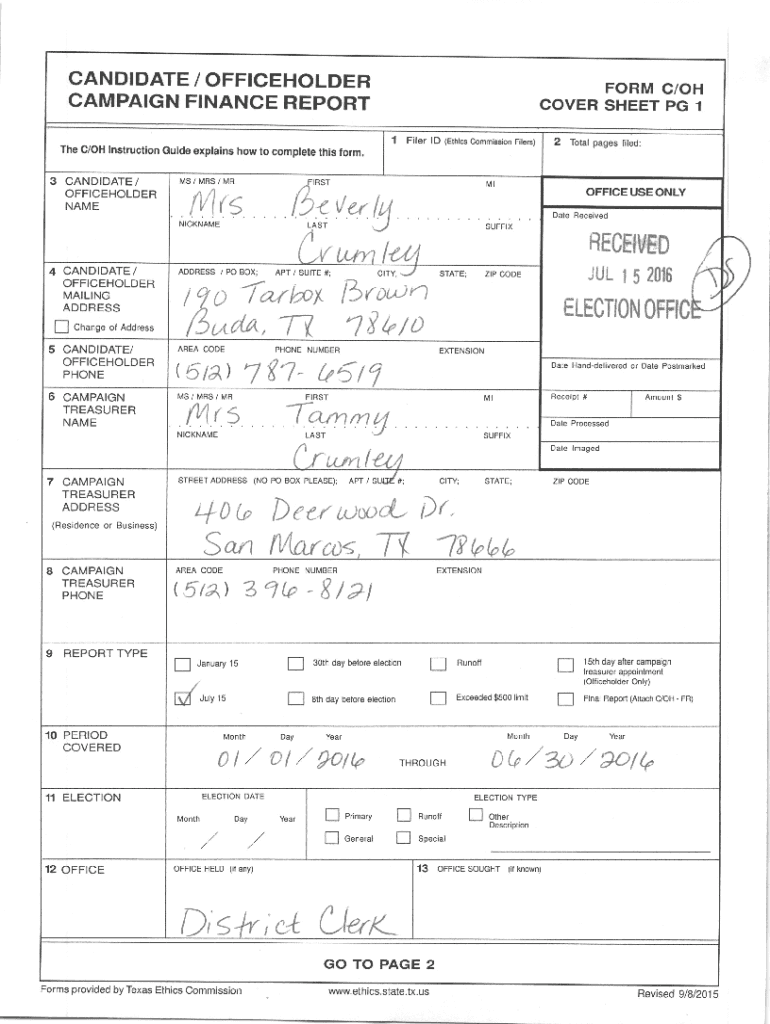 CANDIDATE / OFFICEHOLDER
CAMPAIGN FINANCE REPORT
FORM C/OH
COVER SHEET PG 1
The C/OH Instruction Guide explains how to complete this form.
1 Filer ID (Ethics Commission Filers)
2 Total pages filed:
3 CANDIDATE / OFFICEHOLDER NAME
MS / MRS / MR FIRST MI
Mrs Beverly
NICKNAME LAST SUFFIX
Crumley
OFFICE USE ONLY
Date Received
RECEIVED
JUL 15 2016
ELECTION OFFICE
4 CANDIDATE / OFFICEHOLDER MAILING ADDRESS
Change of Address
ADDRESS / PO BOX; APT / SUITE #; CITY; STATE; ZIP CODE
190 Tarbox Brown
Buda, TX 78610
5 CANDIDATE/ OFFICEHOLDER PHONE
AREA CODE PHONE NUMBER EXTENSION
(512) 787-6519
Date Hand-delivered or Date Postmarked
6 CAMPAIGN TREASURER NAME
MS / MRS / MR FIRST MI
Mrs Tammy
NICKNAME LAST SUFFIX
Crumley
Receipt # Amount $
Date Processed
Date Imaged
7 CAMPAIGN TREASURER ADDRESS
(Residence or Business)
STREET ADDRESS (NO PO BOX PLEASE); APT / SUITE #; CITY; STATE; ZIP CODE
406 Deerwood Dr.
San Marcos, TX 78666
8 CAMPAIGN TREASURER PHONE
AREA CODE PHONE NUMBER EXTENSION
(512) 396-8121
9 REPORT TYPE
January 15 30th day before election Runoff 15th day after campaign treasurer appointment (Officeholder Only)
July 15 8th day before election Exceeded $500 limit Final Report (Attach C/OH - FR)
10 PERIOD COVERED
Month Day Year Month Day Year
01/01/2016 THROUGH 06/30/2016
11 ELECTION
ELECTION DATE ELECTION TYPE
Month Day Year
/ /
Primary Runoff Other Description
General Special
12 OFFICE
OFFICE HELD (if any)
District Clerk
13 OFFICE SOUGHT (if known)
GO TO PAGE 2
Forms provided by Texas Ethics Commission www.ethics.state.tx.us Revised 9/8/2015